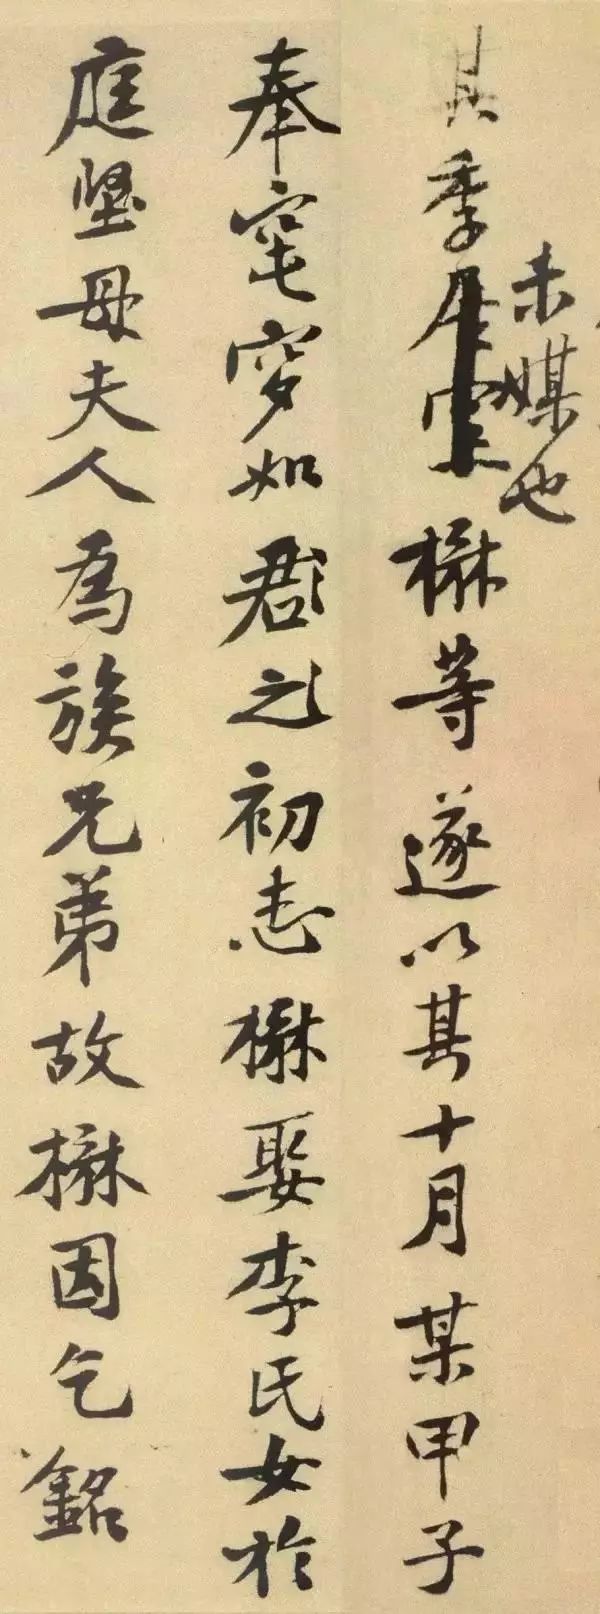 未媒也
其季楙等遂以其十月某甲子
奉窀穸如君之初志楙娶李氏女於
庭堅母夫人為族兄弟故楙因乞銘